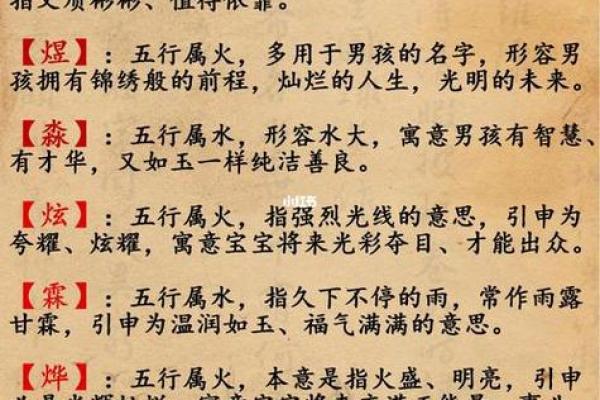 指文质彬彬、值得依靠。
【煜】：五行属火，多用于男孩的名字，形容男
孩拥有锦绣般的前程，灿烂的人生，光明的未来。
【淼】：五行属水，形容水大，寓意男孩有智慧、
有才华，又如玉一样纯洁善良。
小红书
【炫】：五行属火，指强烈光线的意思，引申为
夸耀、炫耀，寓意宝宝将来光彩夺目、才能出众。
【霖】：五行属水，指久下不停的雨，常作雨露
甘霖，引申为温润如玉、福气满满的意思。
【烨】：五行属火，本意是指火盛、明亮，引申